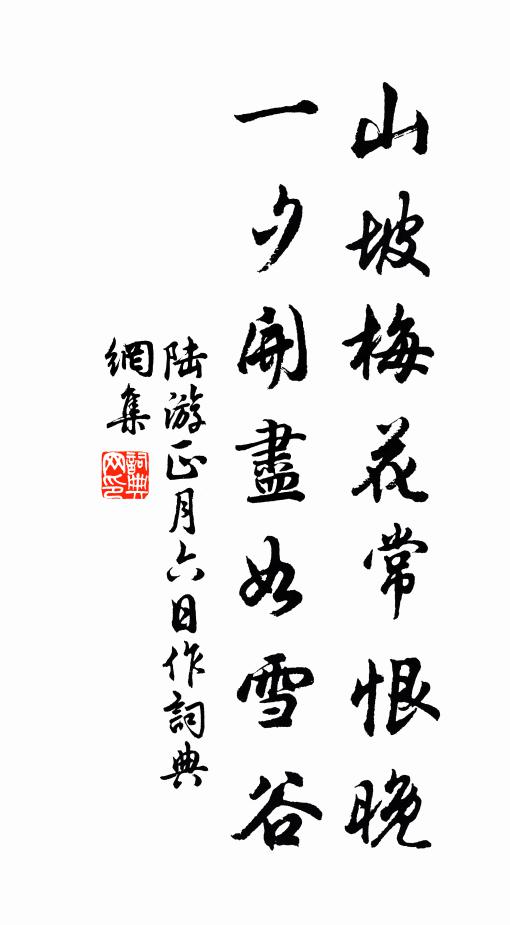 山坡梅花常恨晚
一夕開盡如雪谷
陆游正月六日作詞典
網集
詞典网印